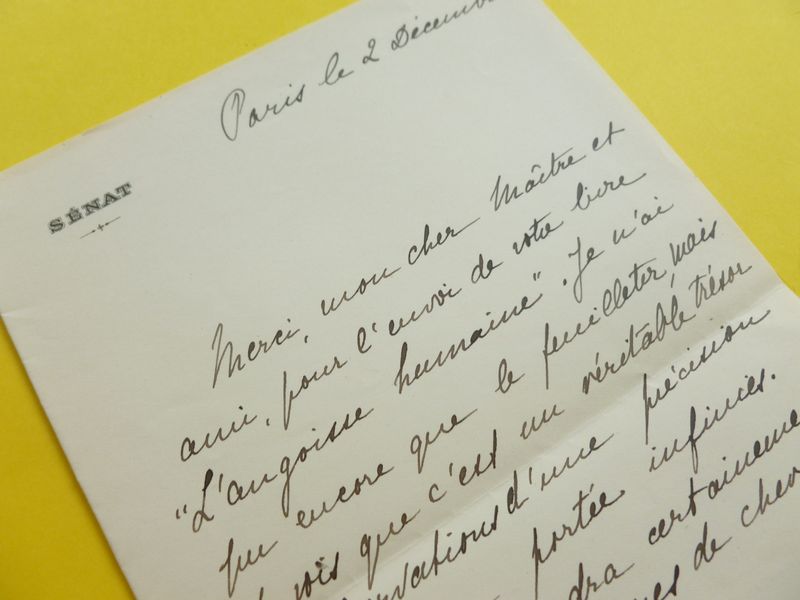 Paris le 2 Décemb
SÉNAT
Merci, mon cher Maître et
ami, pour l'envoi de votre livre
"L'angoisse humaine". Je n'ai
pu encore que le feuilleter, mais
vois que c'est un véritable trésor
ervations d'une précision
portée infinies.
dra certaineme
es de chev